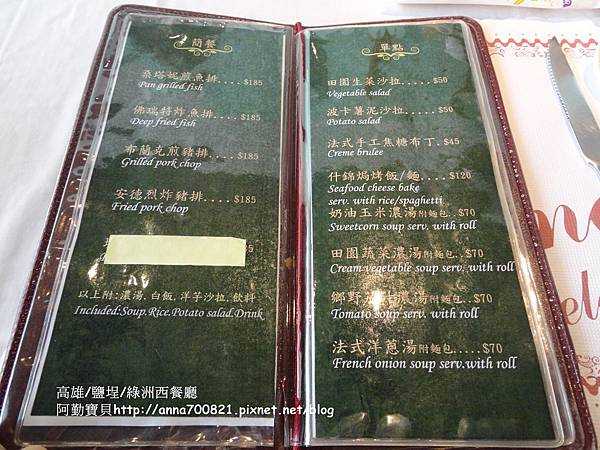 簡餐
桑塔妮煎魚排....$185
Pan grilled fish
佛瑞特炸魚排...$185
Deep fried fish
布蘭克煎豬排...$185
Grilled pork chop
安德烈炸豬排...$185
Fried pork chop
以上附:濃湯.白飯.洋芋沙拉.飲料
Included:Soup.Rice.Potato salad.Drink
單點
田園生菜沙拉.....$50
Vegetable salad
波卡薯泥沙拉.....$50
Potato salad
法式手工焦糖布丁.$45
Creme brulee
什錦焗烤飯/麵....$120
Seafood cheese bake
serv. with rice/spaghetti
奶油玉米濃湯附麵包..$70
Sweetcorn soup serv. with roll
田園蔬菜濃湯附麵包..$70
Cream vegetable soup serv. with roll
鄉野濃湯附麵包...$70
Tomato soup serv. with roll
法式洋蔥湯附麵包.....$70
French onion soup serv.with roll
高雄/鹽埕/綠洲西餐廳
阿勤寶貝http://anna700821.pixnet.net/blog